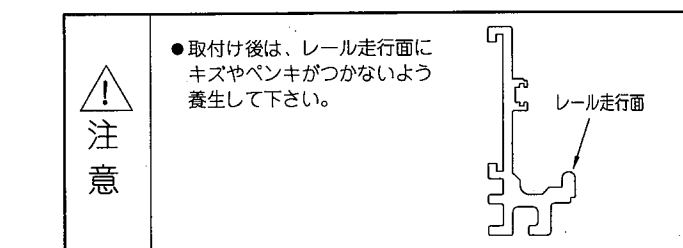 注
意
●取付け後は、レール走行面に
キズやペンキがつかないよう
養生して下さい。
レール走行面